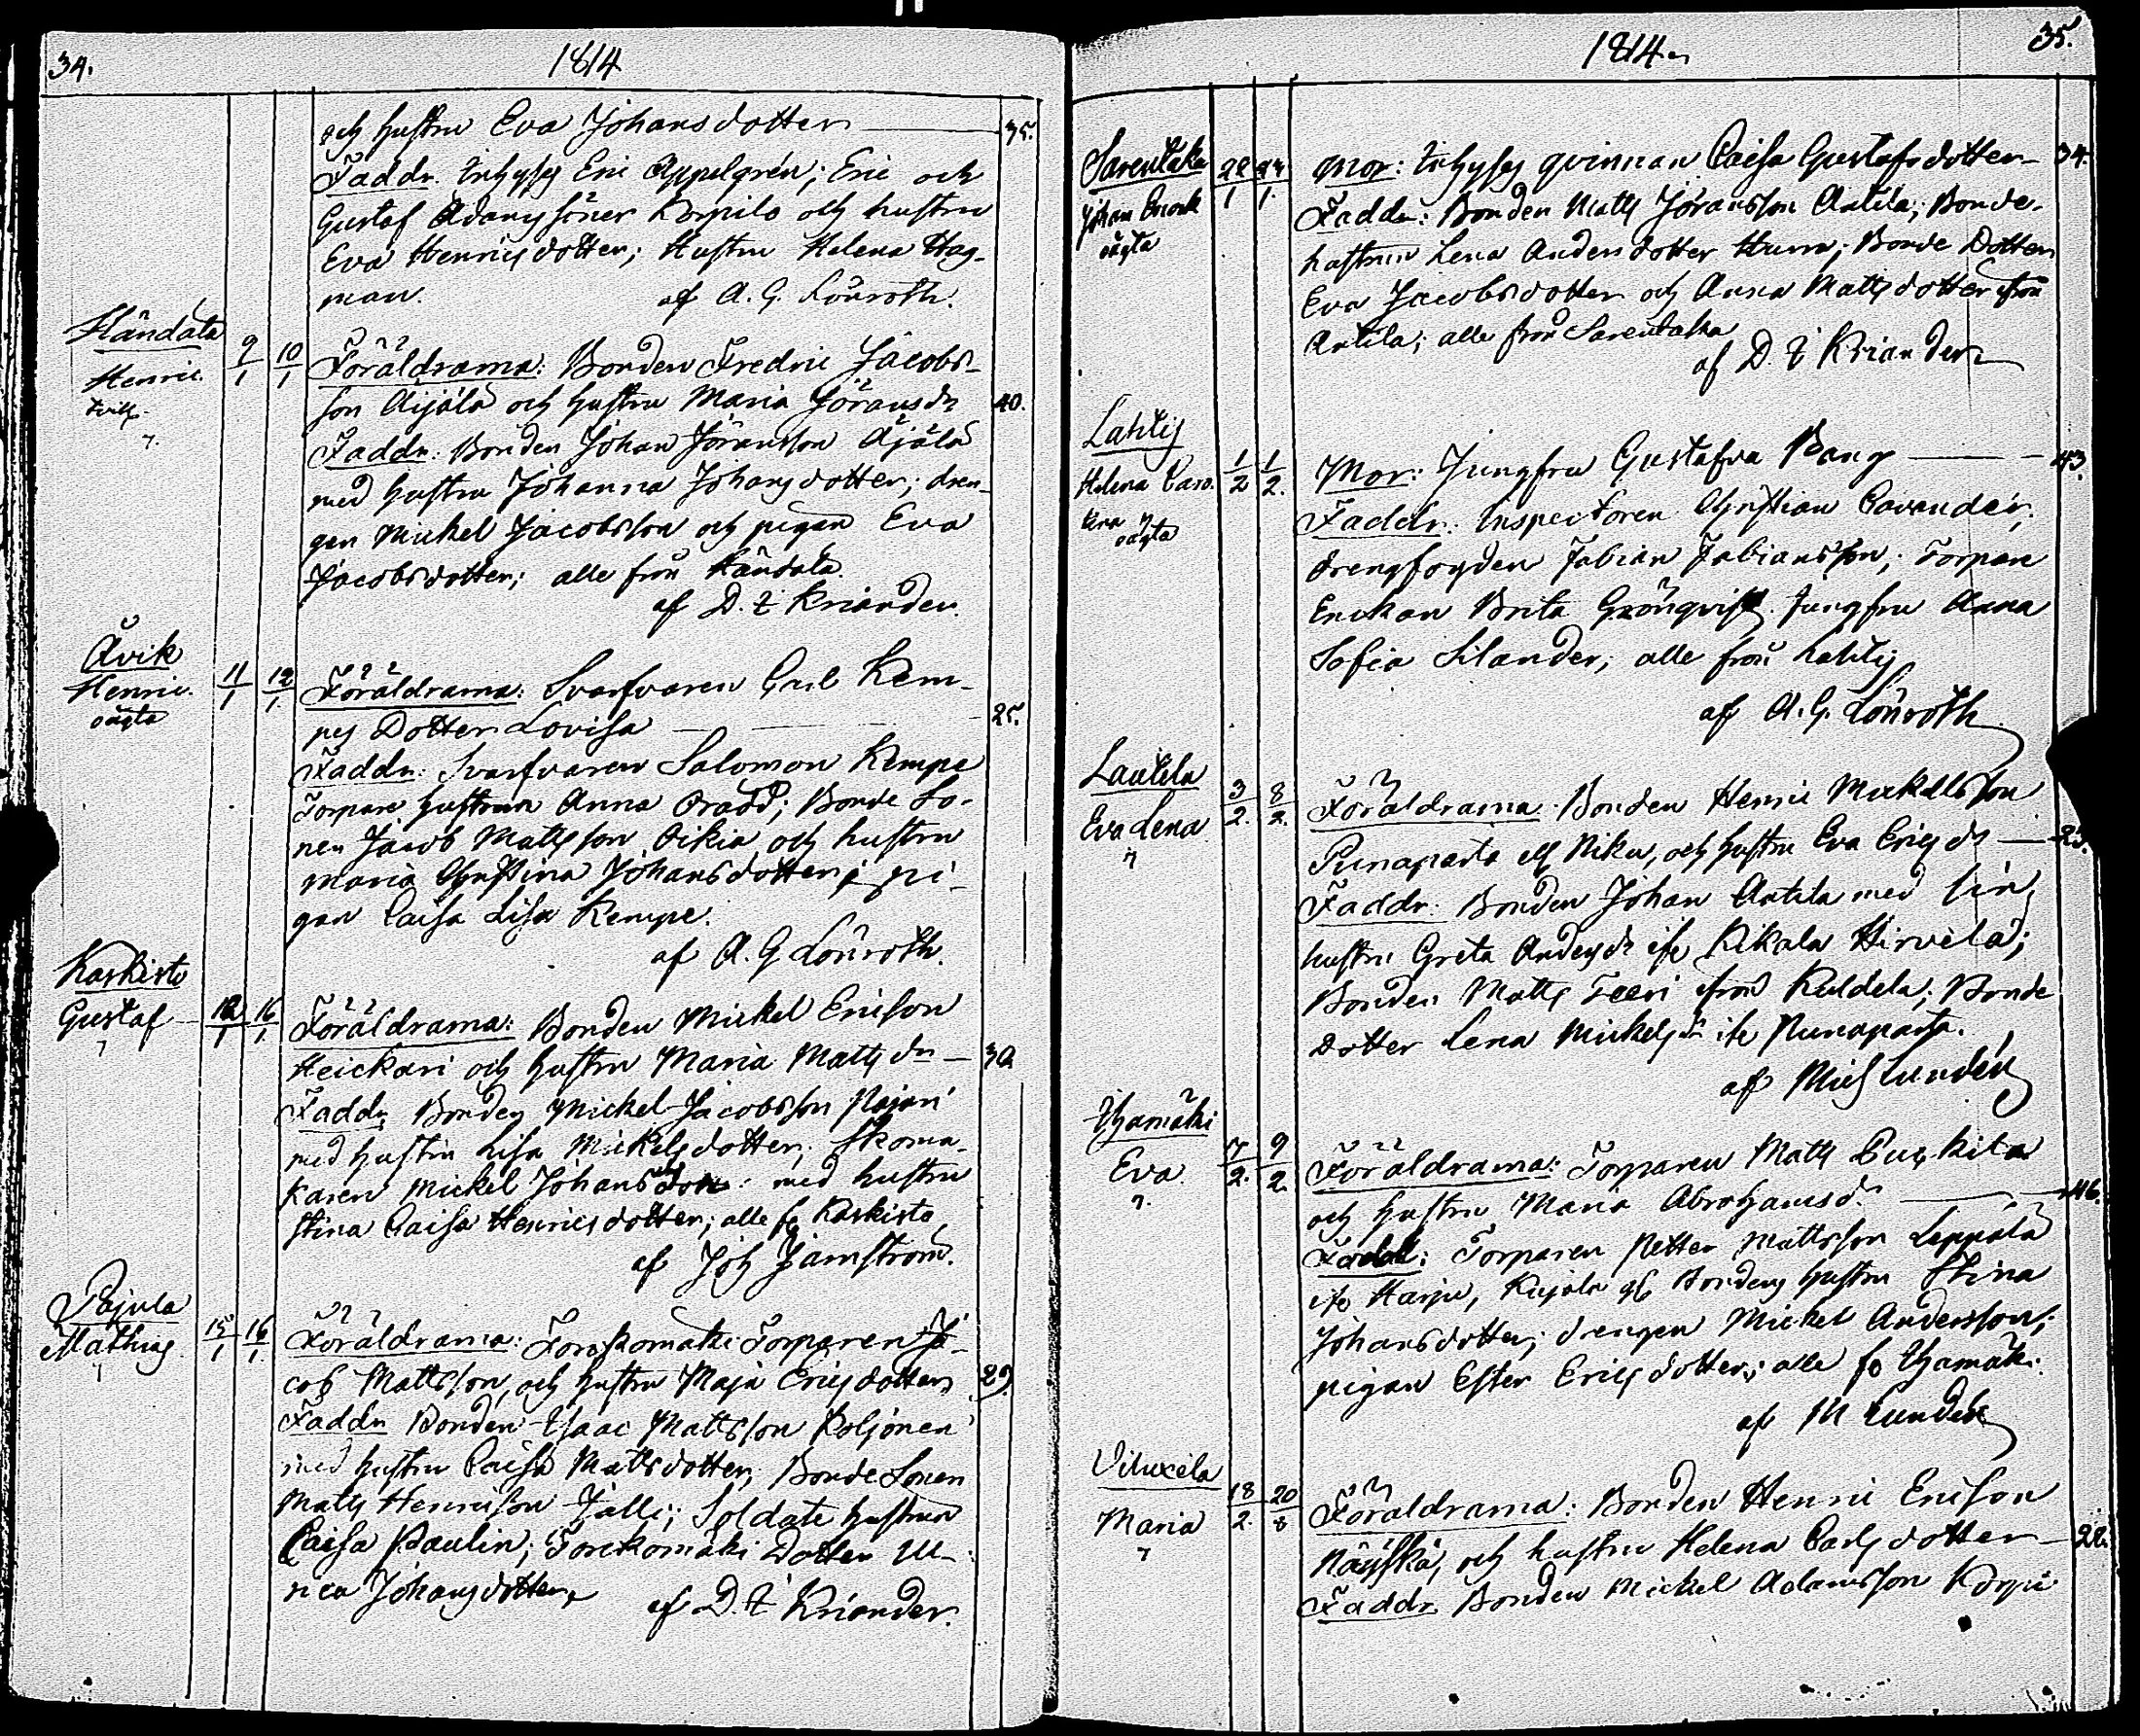 34.
1814
och hustru Eva Johansdotter 35.
Faddr. Inhyses Eric Appelgrén; Eric och
Gustaf Adamssöner Korpilo och hustru
Eva Henricsdotter; Hustru Helena Hag-
man. af A. G. Lönroth.
Händälä
Henric
9/1 10/1
Föräldrarna: Bonden Fredric Jacobs-
son Äijälä och hustru Maria Jöransdr 40.
Faddr. Bonden Johan Jöransson Äijälä
med hustru Johanna Johansdotter; dren-
gen Mickel Jacobsson och pigan Eva
Jacobsdotter; alle från Händälä.
af D. I Kriander.
Åvik
Henric.
oägta
11/1 12/1
Föräldrarna: Svarfvaren Carl Kem-
pes Dotter Lovisa 25.
Faddr: Svarfvaren Salomon Kempe
Torpare hustrun Anna Oradd; Bonde So-
nen Jacob Mattsson Oikia och hustru
Maria Christina Johansdotter; pi-
gan Caisa Lisa Kempe.
af A. G Lönroth.
Karkisto
Gustaf
12/1 16/1
Föräldrarna: Bonden Mickel Ericson
Heickari och hustru Maria Matts dr 30.
Faddr. Bonden Mickel Jacobsson Pajari
med hustru Lisa Mickelsdotter; Skoma-
karen Mickel Johansson med hustru
Stina Caisa Henricsdotter; alle fr Karkisto
af Joh Jarnström.
Pajula
Mathias
15/1 16/1
Föräldrarna: Torckomäki Torparen Ja-
cob Mattsson, och hustru Maja Ericsdotter 29.
Faddr Bonden Isaac Mattsson Koljonen
med hustru Caisa Mattsdotter; Bonde Sonen
Matts Henricson Jälli; Soldats hustrun
Caisa Paulin; Torckomäki Dotter Ul-
rica Johansdotter
af D. I Kriander.
1814
35.
Sarentaka
Johan Enock
oägta
22/1 24/1
Mor: Inhyses qvinnan Caisa Gustafsdotter 34.
Faddr: Bonden Matts Jöransson Antila; Bonde-
hustrun Lena Andersdotter Hurra; Bonde Dotter
Eva Jacobsdotter och Anna Mattsdotter från
Antila; alle från Sarentaka
af D. I Kriander
Lahtis
Helena Caro-
lina
oägta
1/2 1/2.
Mor: Jungfru Gustafva Bang 43.
Faddr: Inspectoren Christian Cavander;
drengfogden Fabian Fabiansson; Torpare
Enckan Brita Grönqvist. Jungfru Anna
Sofia Silander; alle från Lahtis
af A. G. Lönroth
Lautela
Eva Lena
3/2. 8/2.
Föräldrarna: Bonden Henric Mickelsson
Punaparta ell Niku, och hustru Eva Erics dr 25.
Faddr: Bonden Johan Antila med sin
hustru Greta Anders dr ifr Kikala Hirvelä;
Bonden Matts Feeri ifrån Kuldela; Bonde
Dotter Lena Mickels dr ifr Punaparta.
af Mich Lundén
Yhamäki
Eva
7/2. 9/2.
Föräldrarna: Torparen Matts Puckila
och hustru Maria Abrahamsd. 46.
Faddr: Torparen Petter Mattsson Leppälä
ifr Harju, Kujala Bondens hustru Stina
Johansdotter; drengen Mickel Andersson;
pigan Ester Ericsdotter; alle fr Yhamäki.
af M Lundén
Viluxela
Maria
18/2. 20/2
Föräldrarna: Bonden Henric Ericson
Näyskä, och hustru Helena Carlsdotter 22.
Faddr Bonden Mickel Adamsson Korpi